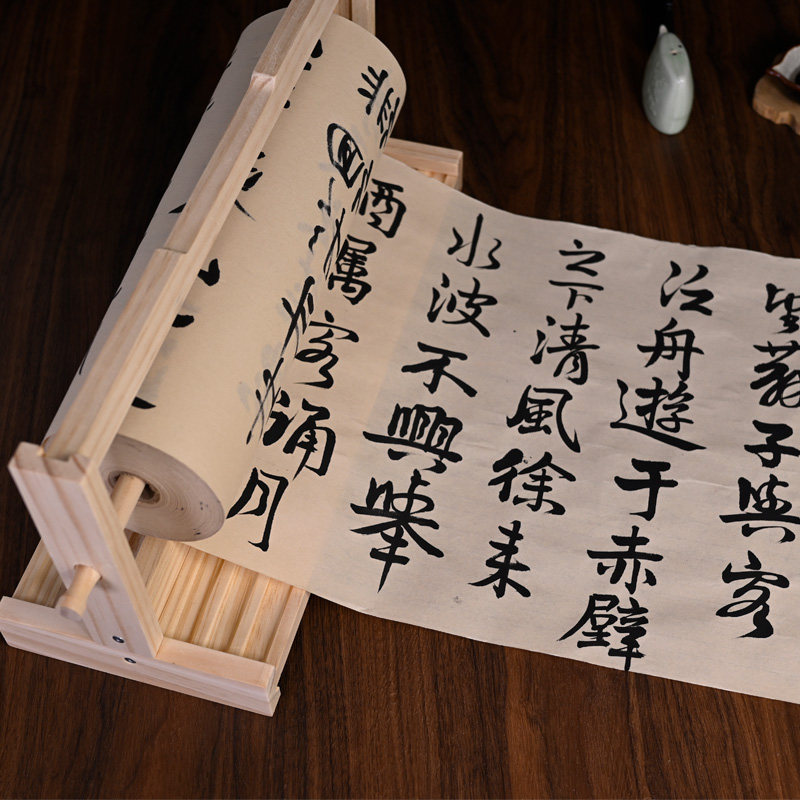 望蘇子與客
泛舟遊于赤壁
之下清風徐来
水波不興舉
酒属客誦月